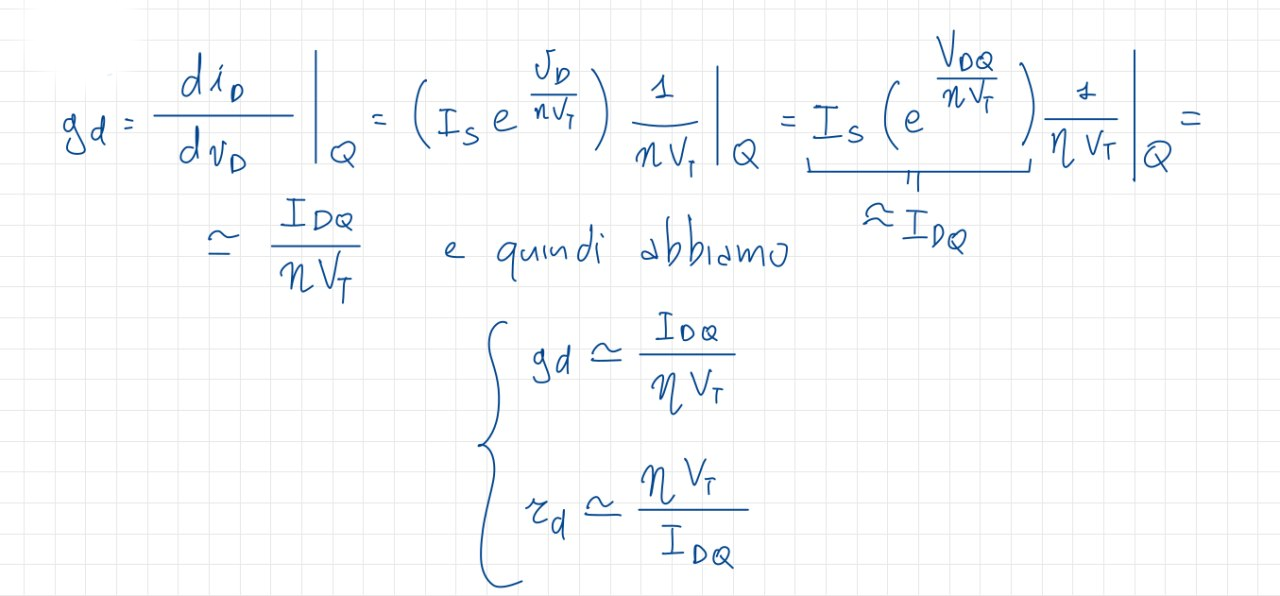 g_d = di_D / dv_D |_Q = (I_S e^(v_D / ηV_T)) 1 / ηV_T |_Q = I_S (e^(V_DQ / ηV_T)) 1 / ηV_T |_Q =
≈ I_DQ
≃ I_DQ / ηV_T e quindi abbiamo
{ g_d ≃ I_DQ / ηV_T
r_d ≃ ηV_T / I_DQ